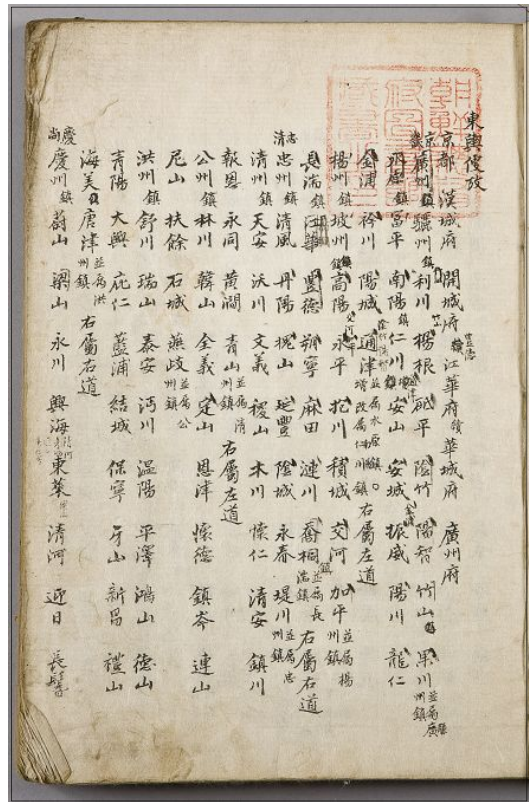 東輿便攷
京都 漢城府 開城府 江華府 華城府 廣州府
京畿 廣州鎮 驪州鎮 利川 楊根 砥平 陰竹 陽智 竹山 果川 並屬廣州鎮
富平 南陽鎮 仁川 安山 安城 振威 陽川 龍仁
金浦 衿川 陽城 通津 並屬水原鎮 右屬左道
楊州鎮 坡州鎮 高陽 永平 抱川 積城 交河 加平 並屬楊州鎮
長湍鎮 江華 豊德 朔寧 麻田 漣川 喬桐 並屬長湍鎮 右屬右道
忠清 忠州鎮 清風 丹陽 槐山 延豊 陰城 永春 堤川 並屬忠州鎮
清州鎮 天安 沃川 文義 稷山 木川 懷仁 清安 鎮川
報恩 永同 黃澗 青山 並屬清州鎮 右屬左道
公州鎮 林川 韓山 全義 定山 恩津 懷德 鎮岑 連山
尼山 扶餘 石城 燕歧 並屬公州鎮
洪州鎮 舒川 瑞山 泰安 沔川 溫陽 平澤 鴻山 德山
青陽 大興 庇仁 藍浦 結城 保寧 牙山 新昌 禮山
海美 唐津 並屬洪州鎮 右屬右道
慶尚 慶州鎮 蔚山 梁山 永川 興海 東萊 清河 迎日 長鬐